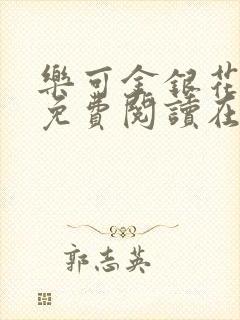 樂可金銀花
免費閱讀在
郭志英